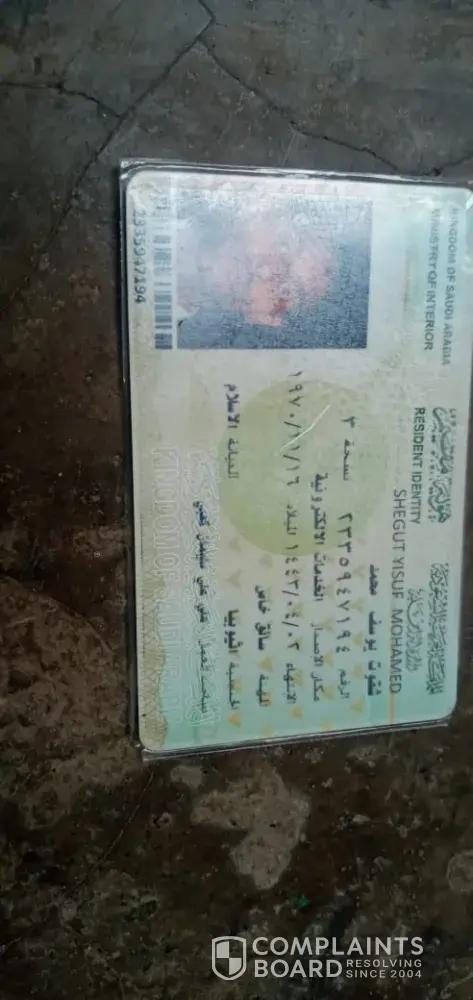 KINGDOM OF SAUDI ARABIA
MINISTRY OF INTERIOR
RESIDENT IDENTITY
SHEGUT YISUF MOHAMED
شقوت يوسف محمد
الرقم ٢٣٣٥٩٤٧١٩٤ نسخة ٣
مكان الاصدار الخدمات الالكترونية
الانتهاء ١٤٤٣/٠٤/٠٢ الميلاد ١٩٧٠/١١/١٦
المهنة سائق خاص
الجنسية اثيوبيا الديانة الاسلام
صاحب العمل علي علي
2335947194
KINGDOM OF SAUDI
COMPLAINTS
BOARD RESOLVING
SINCE 2004